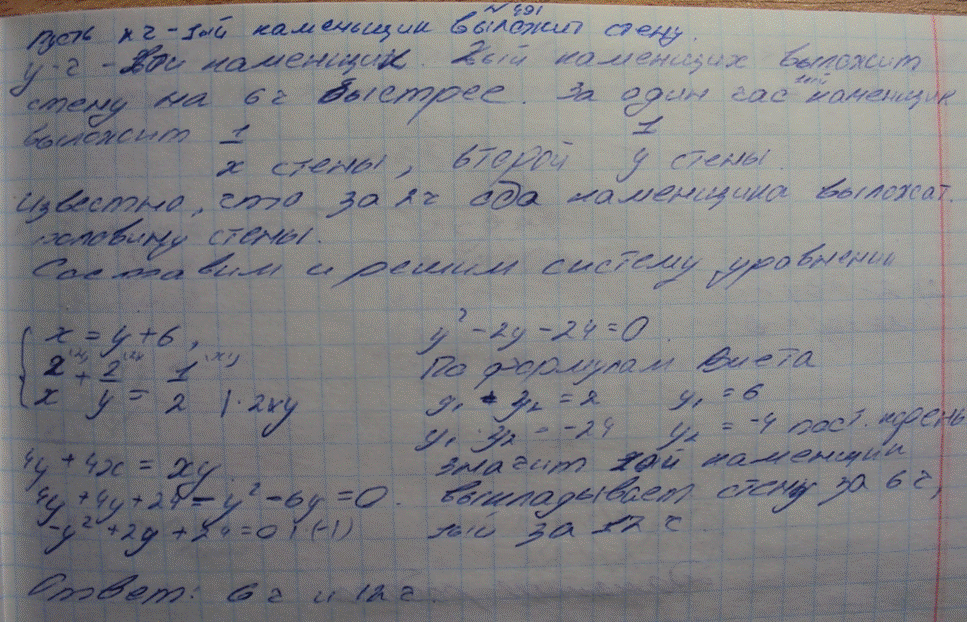 № 491
Пусть х ч - 1ый каменьщик выложит стену.
у ч - 2ой каменщик. 2ый каменщик выложит
стену на 6 ч быстрее. За один час 1ый каменщик
выложит 1/х стены, второй 1/у стены.
Известно, что за 2ч оба каменщика выложат
половину стены.
Составим и решим систему уравнений
{ х = у + 6,
2/х + 2/у = 1/2 | · 2ху
4у + 4х = ху
4у + 4у + 24 - у² - 6у = 0.
-у² + 2у + 24 = 0 | (-1)
у² - 2у - 24 = 0.
По формулам Виета
у₁ + у₂ = 2 у₁ = 6
у₁ · у₂ = -24 у₂ = -4 пост. корень
значит 2ой каменщик
выкладывает стену за 6 ч,
1ый за 12 ч.
Ответ: 6 ч и 12 ч.